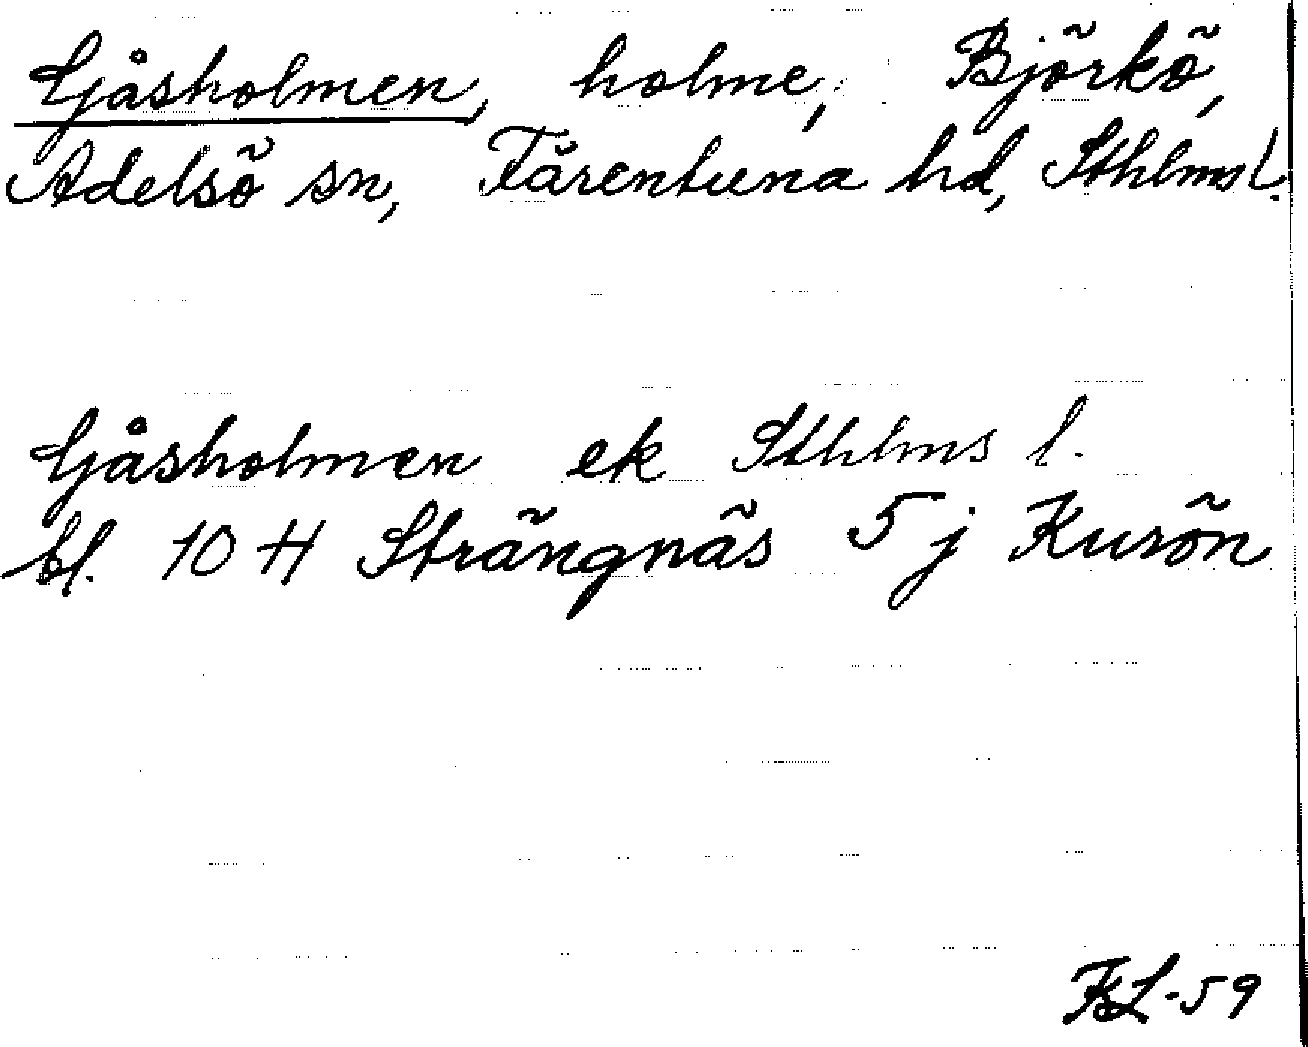 Gåsholmen, holme, Björkö,
Adelsö sn, Färentuna hd, Sthlms l.
Gåsholmen ek Sthlms l.
bl. 10 H Strängnäs 5 j Kurön
-59